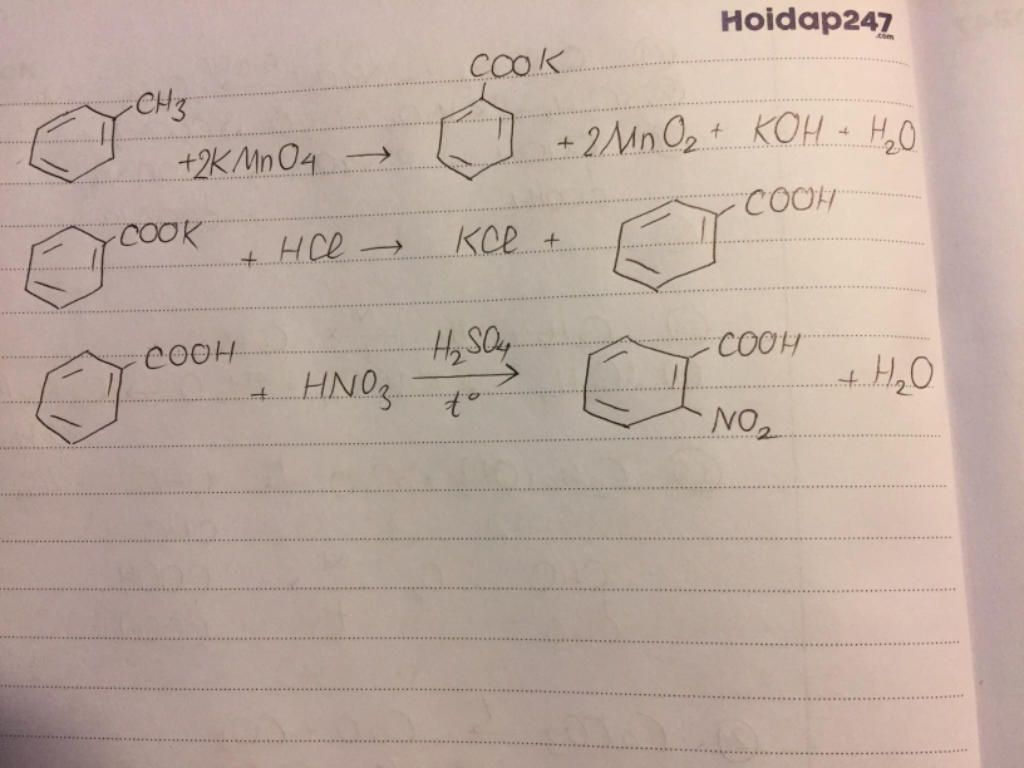 Hoidap247
.com
COOK
CH3
+2KMnO4 → + 2MnO2 + KOH + H2O
COOK + HCl → KCl + COOH
COOH + HNO3 H2SO4 t° → COOH NO2 + H2O